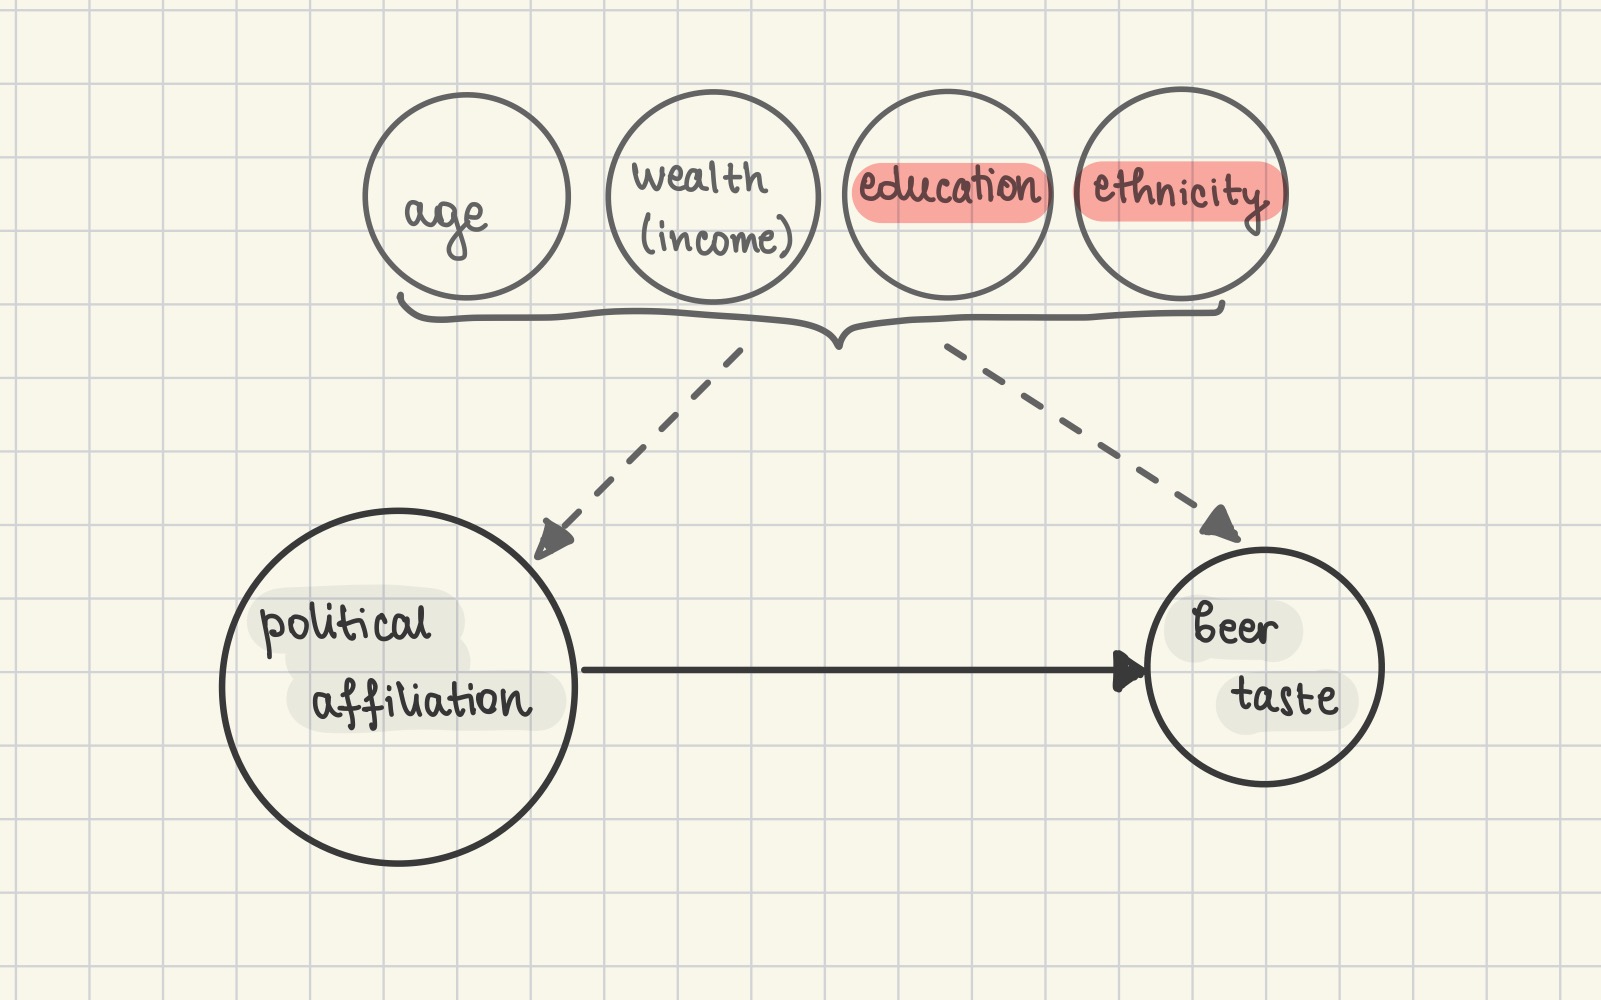 age
wealth
(income)
education
ethnicity
political
affiliation
beer
taste